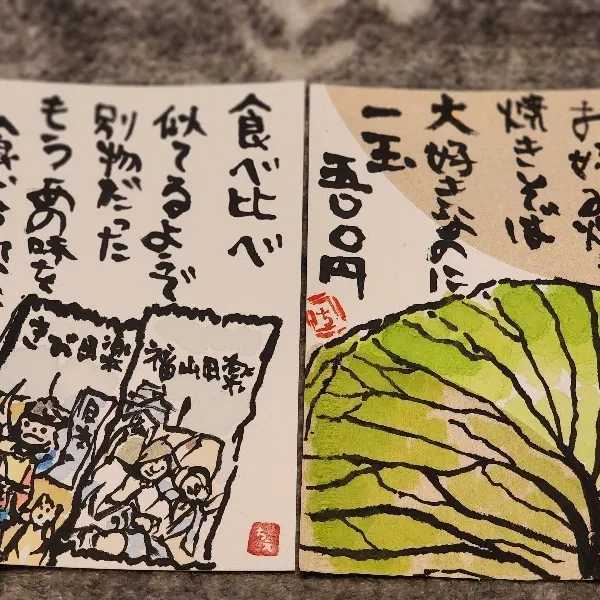 お好み焼
焼きそば
大好きなのに
一玉
五〇〇円
食べ比べ
似てるようで
別物だった
もうあの味を
福山田楽
きび田楽
日本